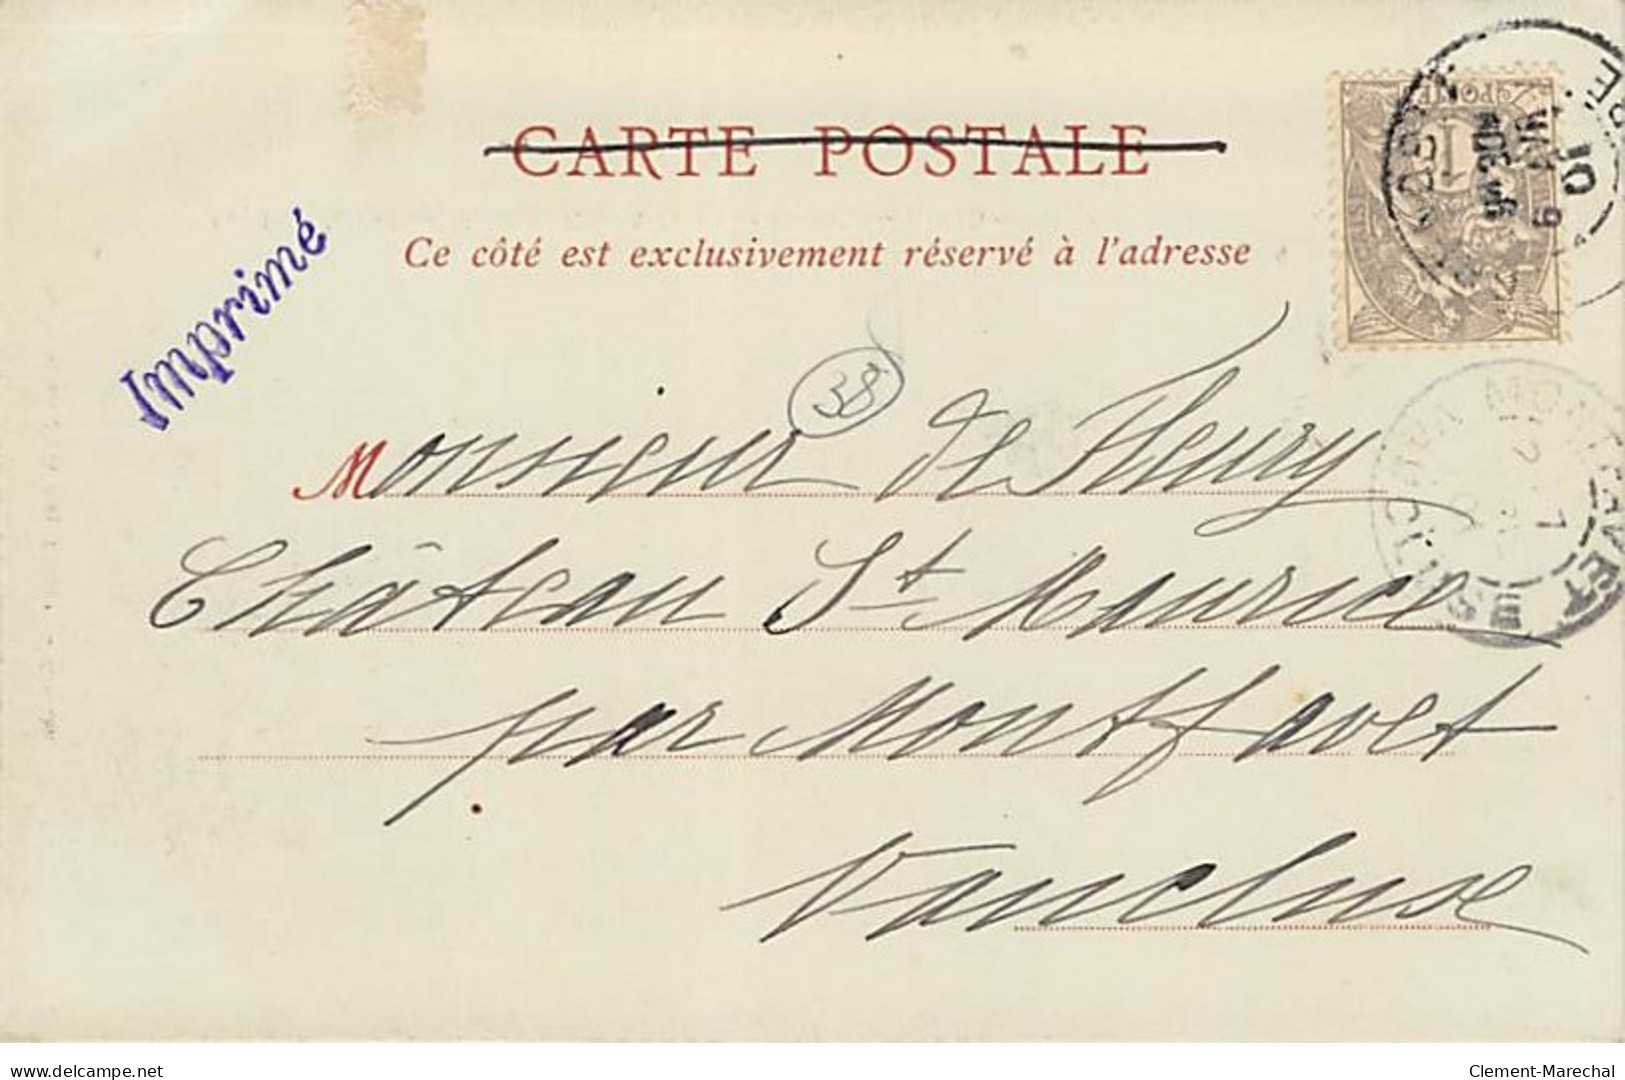 CARTE POSTALE
Ce côté est exclusivement réservé à l'adresse
Imprimé
38
Monsieur de Fleury
Château St Maurice
par Montfavet
Vaucluse
delcampe.net
Clement-Marechal